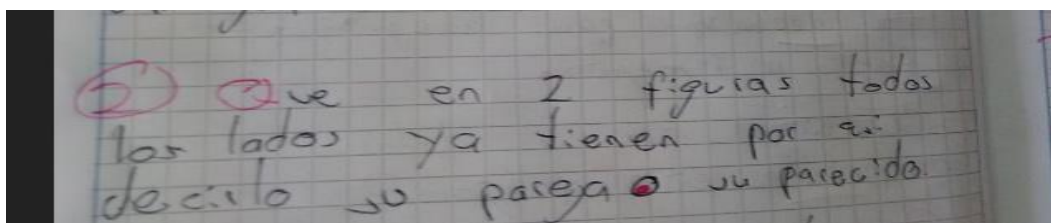 5) Que en 2 figuras todos
los lados ya tienen por así
decirlo su pareja o su parecido.